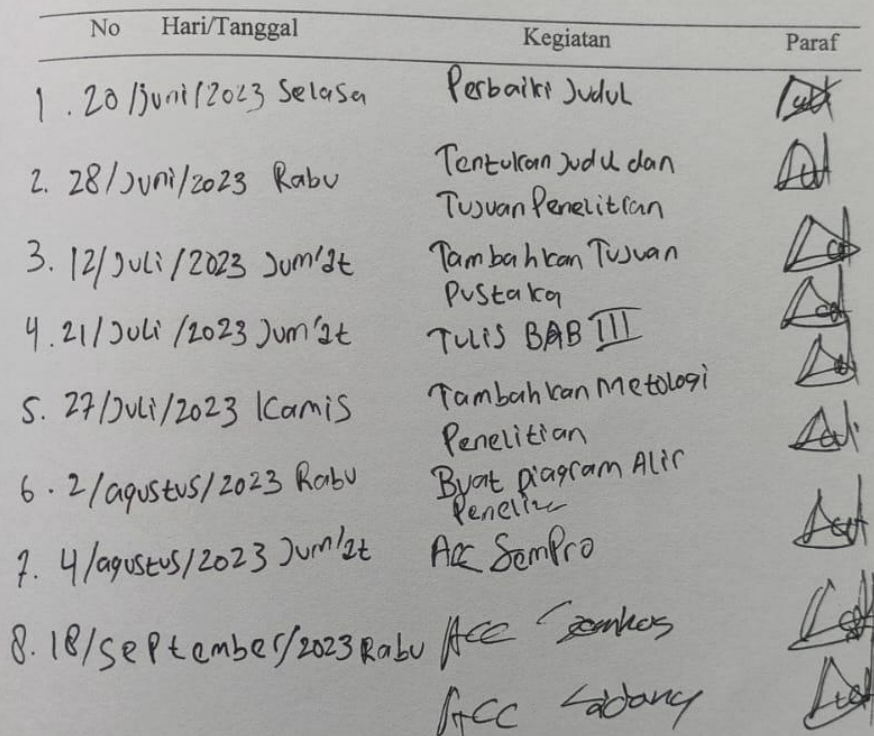 No Hari/Tanggal Kegiatan Paraf
1. 20/juni/2023 Selasa Perbaiki Judul
2. 28/Juni/2023 Rabu Tentukan Judul dan
Tujuan Penelitian
3. 12/Juli/2023 Jum'at Tambahkan Tujuan
Pustaka
4. 21/Juli/2023 Jum'at Tulis BAB III
5. 27/Juli/2023 Kamis Tambahkan Metologi
Penelitian
6. 2/agustus/2023 Rabu Buat Diagram Alir
7. 4/agustus/2023 Jum'at Acc SemPro
8. 18/September/2023 Rabu Acc Semhas
Acc Sidang